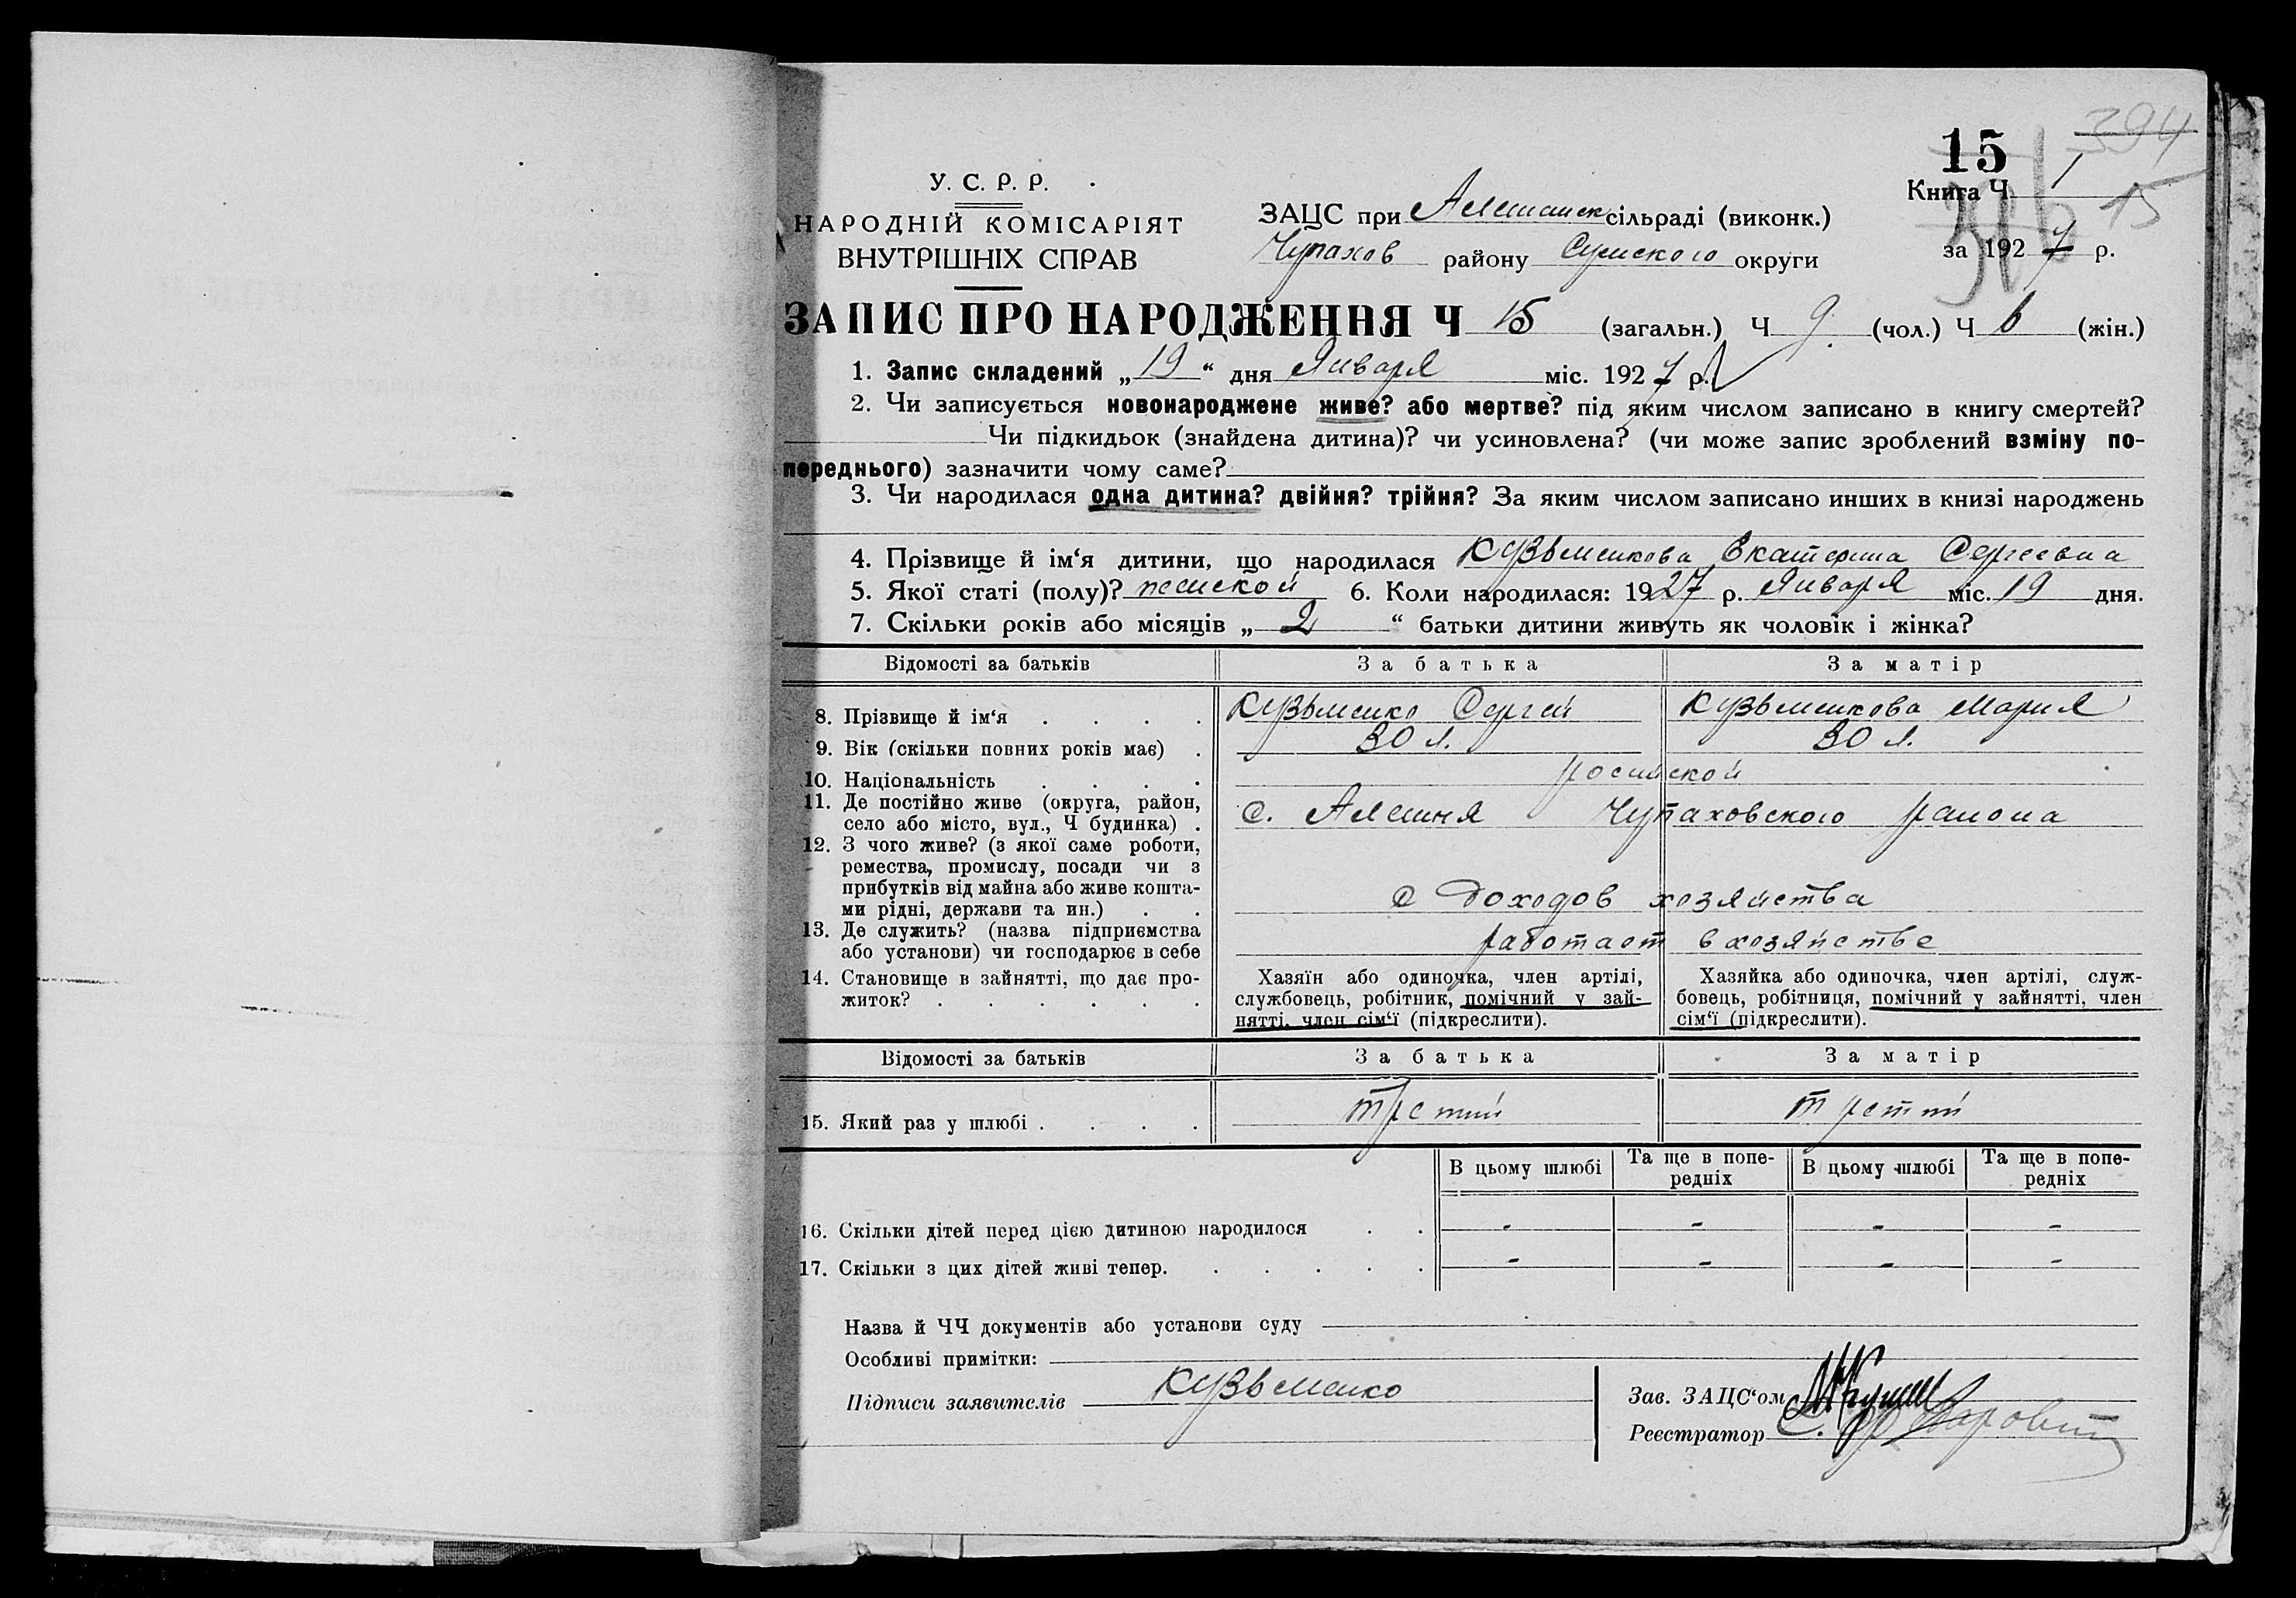 394
15
Книга Ч 1
15
за 1927 р.
У. С. Р. Р.
НАРОДНІЙ КОМІСАРІЯТ
ВНУТРІШНІХ СПРАВ
ЗАЦС при Алешанск сільраді (виконк.)
Чупахов району Сумского округи
ЗАПИС ПРО НАРОДЖЕННЯ Ч 15 (загальн.) Ч 9 (чол.) Ч 6 (жін.)
1. Запис складений „19“ дня Января міс. 1927 р.
2. Чи записується новонароджене живе? або мертве? під яким числом записано в книгу смертей?
Чи підкидьок (знайдена дитина)? чи усиновлена? (чи може запис зроблений взміну по-
переднього) зазначити чому саме?
3. Чи народилася одна дитина? двійня? трійня? За яким числом записано инших в книзі народжень
4. Прізвище й ім‘я дитини, що народилася Кузьменкова Екатерина Сергеевна
5. Якої статі (полу)? женской 6. Коли народилася: 1927 р. Января міс. 19 дня.
7. Скільки років або місяців „2“ батьки дитини живуть як чоловік і жінка?
Відомості за батьків За батька За матір
8. Прізвище й ім‘я . . . . Кузьменко Сергей Кузьменкова Мария
9. Вік (скільки повних років має) . 30 л. 30 л.
10. Національність . . . . росийской
11. Де постійно живе (округа, район,
село або місто, вул., Ч будинка) . с. Алешня Чупаховского района
12. З чого живе? (з якої саме роботи,
ремества, промислу, посади чи з
прибутків від майна або живе кошта-
ми рідні, держави та ин.) . . С доходов хозяйства
13. Де служить? (назва підприємства
або установи) чи господарює в себе работает в хозяйстве
14. Становище в зайнятті, що дає про-
житок? . . . . . .
Хазяїн або одиночка, член артілі,
службовець, робітник, помічний у зай-
нятті, член сім‘ї (підкреслити).
Хазяйка або одиночка, член артілі, служ-
бовець, робітниця, помічний у зайнятті, член
сім‘ї (підкреслити).
Відомості за батьків За батька За матір
15. Який раз у шлюбі . . . . третий третий
В цьому шлюбі Та ще в попе-
редніх В цьому шлюбі Та ще в попе-
редніх
16. Скільки дітей перед цією дитиною народилося . . - - - -
17. Скільки з цих дітей живі тепер. . . . . . - - - -
Назва й ЧЧ документів або установи суду
Особливі примітки:
Підписи заявителів Кузьменко
Зав. ЗАЦС‘ом
Реєстратор